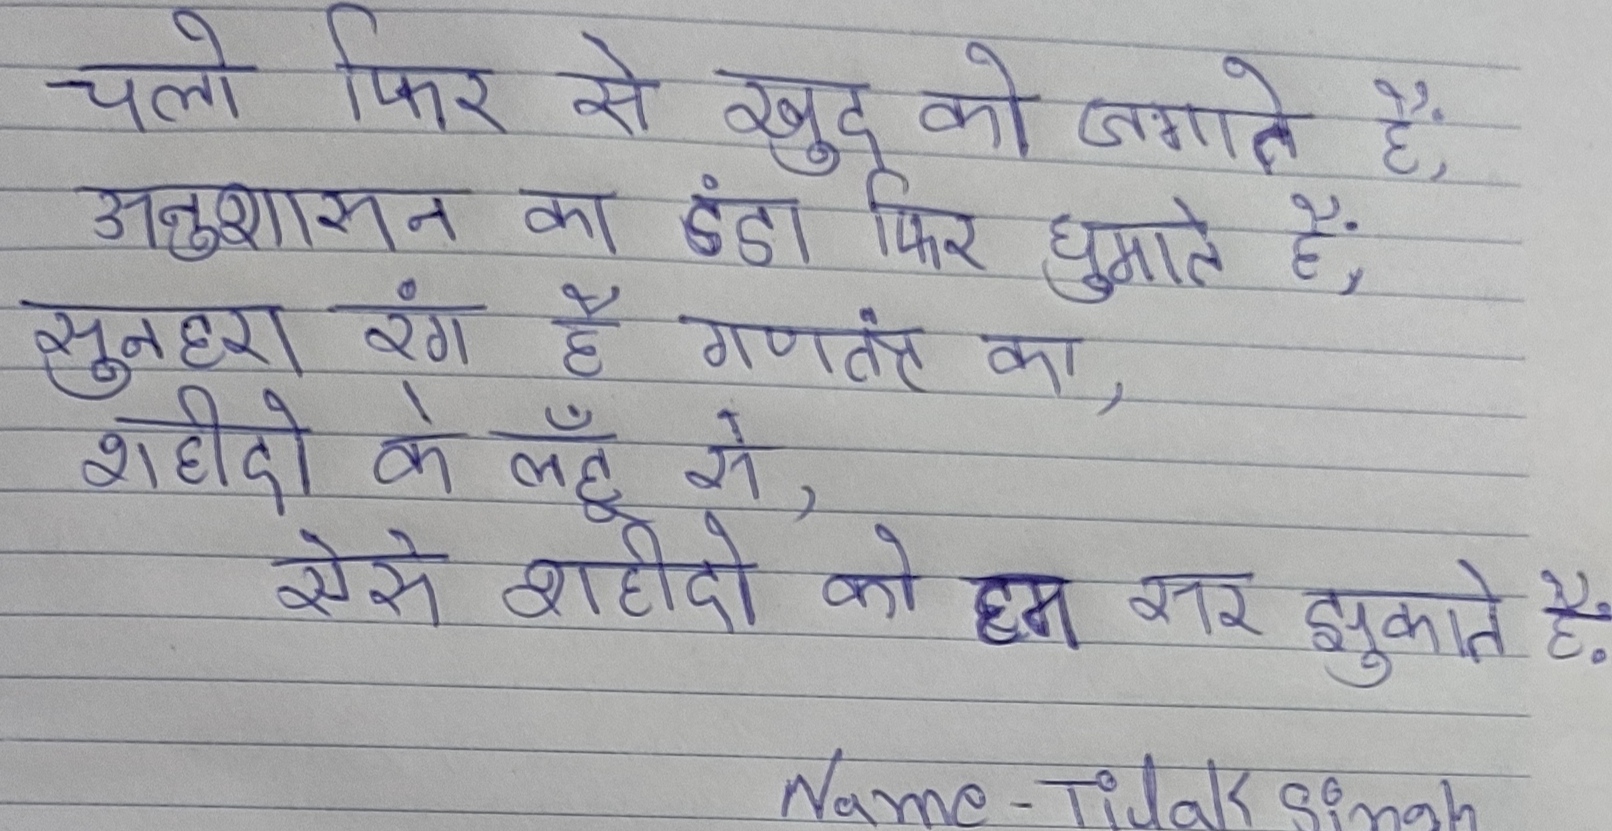 चलो फिर से खुद को जगाते हैं,
अनुशासन का डंडा फिर घुमाते हैं,
सुनहरा रंग है गणतंत्र का,
शहीदो के लहूँ से,
ऐसे शहीदो को हम सर झुकाते हैं.
Name - Tilak Singh